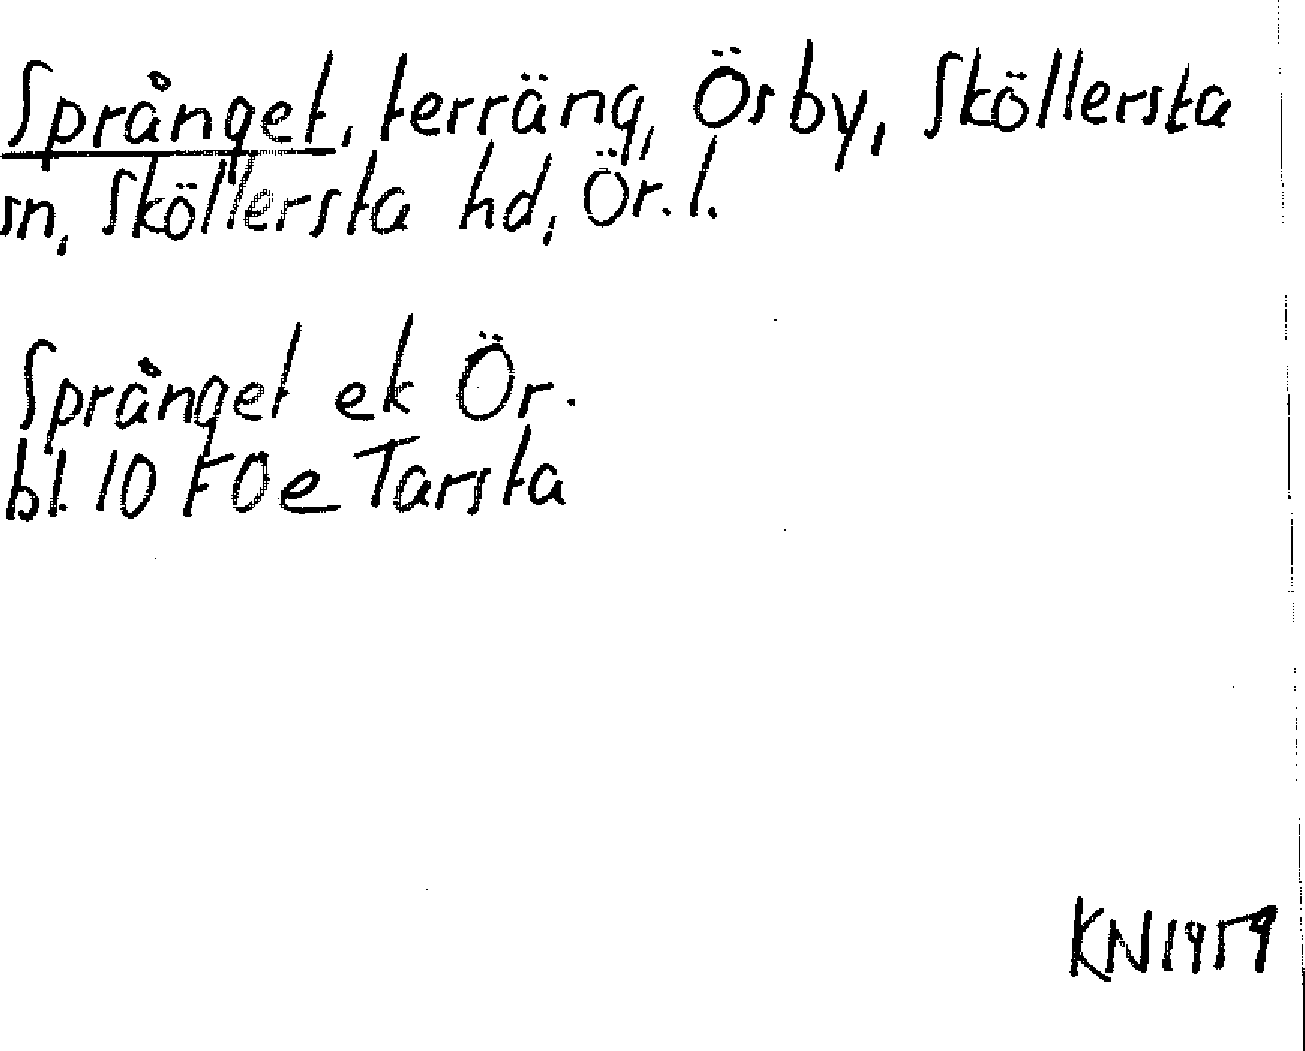 Språnget, terräng, Ösby, Sköllersta
sn, Sköllersta hd, Ör. l.
Språnget ek Ör.
bl. 10 F 0 e Tarsta
KN 1959